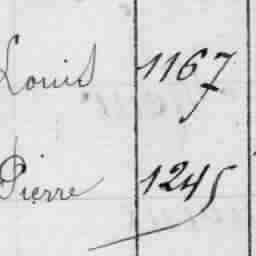 Louis 1167
Pierre 1245